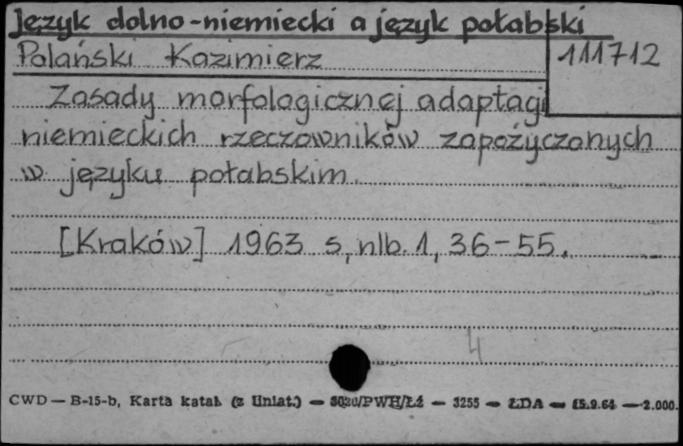 Język dolno-niemiecki a język połabski
Polański Kazimierz
111712
Zasady morfologicznej adaptacji
niemieckich rzeczowników zapożyczonych
w języku połabskim.
[Kraków] 1963 s, nlb. 1, 36-55.
4
CWD — B-15-b, Karta katal. (z Uniat.) — /PWH/Ł2 — 3255 — ŁDA — 15.9.64 — 2.000.